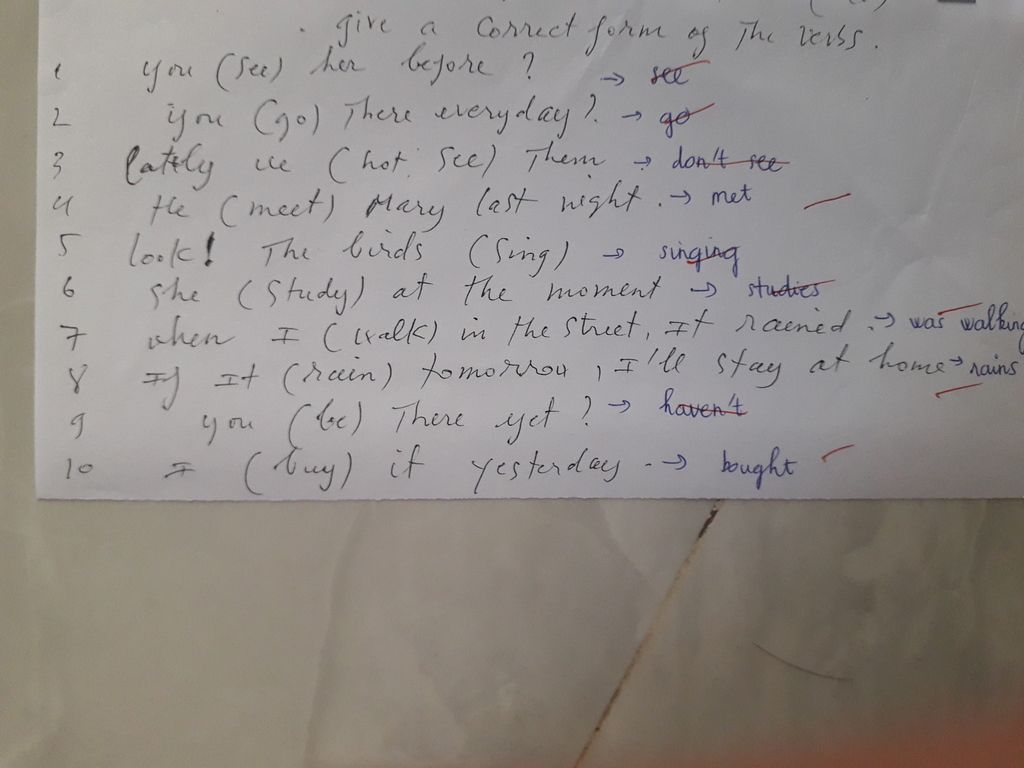 . give a correct form of The verbs.
1 you (see) her before ? → see
2 you (go) There everyday? → go
3 lately we (not see) Them → don't see
4 He (meet) Mary last night . → met
5 look! The birds (sing) → singing
6 She (study) at the moment → studies
7 when I (walk) in the street, It rained . → was walking
8 If It (rain) tomorrow , I'll stay at home → rains
9 you (be) There yet ? → haven't
10 I (buy) it yesterday . → bought